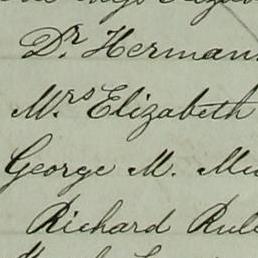 Dr. Herman
Mrs Elizabeth
George M. Mu
Richard Rul